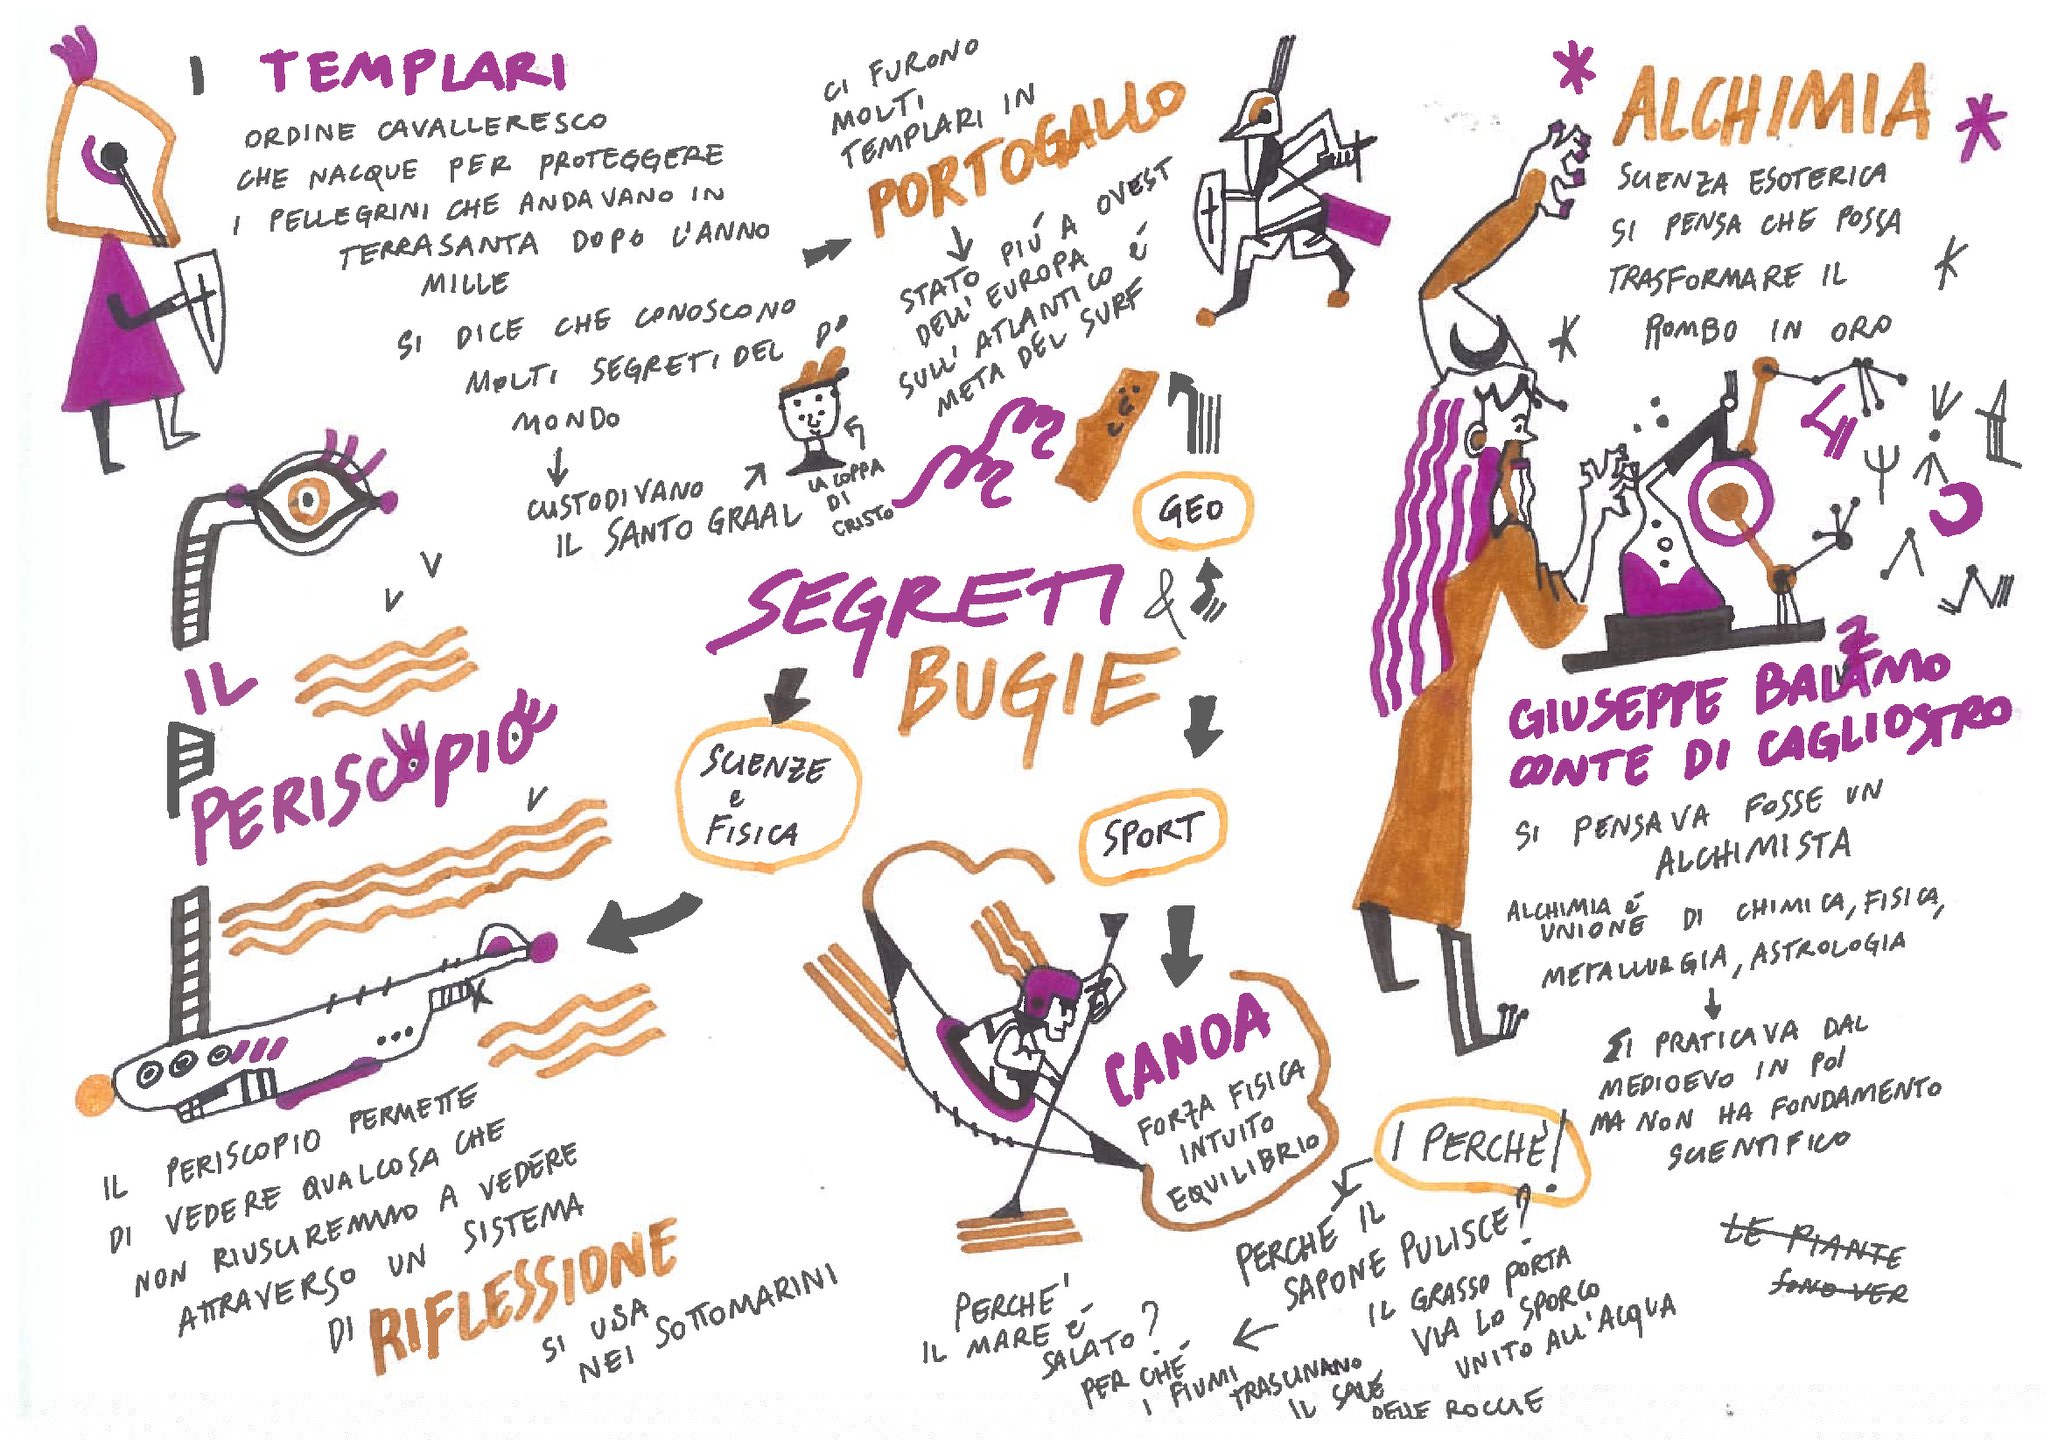 I TEMPLARI
ORDINE CAVALLERESCO
CHE NACQUE PER PROTEGGERE
I PELLEGRINI CHE ANDAVANO IN
TERRASANTA DOPO L'ANNO
MILLE
SI DICE CHE CONOSCONO
MOLTI SEGRETI DEL
MONDO
CUSTODIVANO
IL SANTO GRAAL
LA COPPA
DI
CRISTO
CI FURONO
MOLTI
TEMPLARI IN
PORTOGALLO
STATO PIÚ A OVEST
DELL'EUROPA
SULL'ATLANTICO É
META DEL SURF
GEO
SEGRETI &
BUGIE
SCIENZE
e
FISICA
SPORT
IL
PERISCOPIO
IL PERISCOPIO PERMETTE
DI VEDERE QUALCOSA CHE
NON RIUSCIREMMO A VEDERE
ATTRAVERSO UN SISTEMA
DI RIFLESSIONE
SI USA
NEI SOTTOMARINI
CANOA
FORZA FISICA
INTUITO
EQUILIBRIO
I PERCHÈ!
PERCHÈ IL
SAPONE PULISCE?
IL GRASSO PORTA
VIA LO SPORCO
UNITO ALL'ACQUA
PERCHE'
IL MARE É
SALATO?
PER CHÉ
I FIUMI TRASCINANO
IL SALE
DELLE ROCCIE
ALCHIMIA
SCIENZA ESOTERICA
SI PENSA CHE POSSA
TRASFORMARE IL
PIOMBO IN ORO
GIUSEPPE BALZAMO
CONTE DI CAGLIOSTRO
SI PENSAVA FOSSE UN
ALCHIMISTA
ALCHIMIA É
UNIONE DI CHIMICA, FISICA,
METALLURGIA, ASTROLOGIA
SI PRATICAVA DAL
MEDIOEVO IN POI
MA NON HA FONDAMENTO
SCIENTIFICO
LE PIANTE
SONO VER